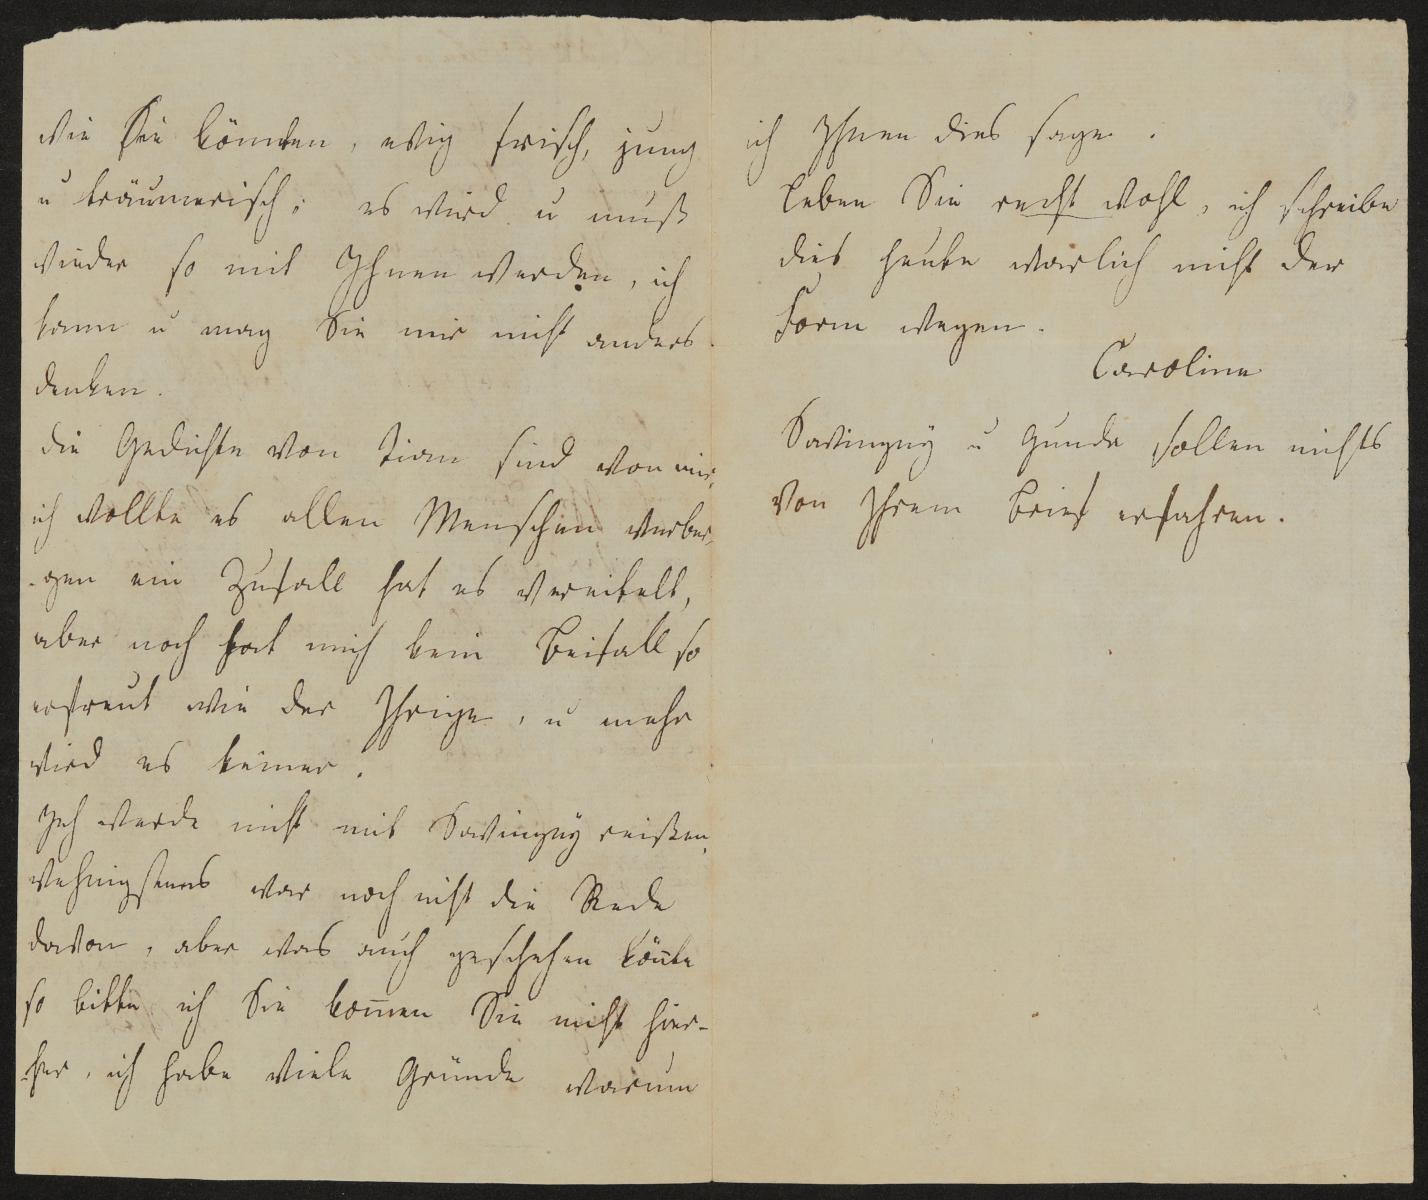 wie Sie könnten, ewig frisch, jung
u träumerisch; es wird u muß
wieder so mit Ihnen werden, ich
kann u mag Sie mir nicht anders
denken.
die Gedichte von Tian sind von mir,
ich wollte es allen Menschen verber-
-gen ein Zufall hat es vereitelt,
aber noch hat mich kein Beifall so
erfreut wie der Ihrige, u mehr
wird es keiner.
Ich werde nicht mit Savingny reißen,
wehnigstens war noch nicht die Rede
davon, aber was auch geschehen kön̅te
so bitte ich Sie kom̅en Sie nicht hier-
-her, ich habe viele Gründe warum
ich Ihnen dies sage.
Leben Sie recht wohl, ich schreibe
dies heute warlich nicht der
Form wegen.
Caroline
Savingny u Gunda sollen nichts
von Ihrem Brief erfahren.